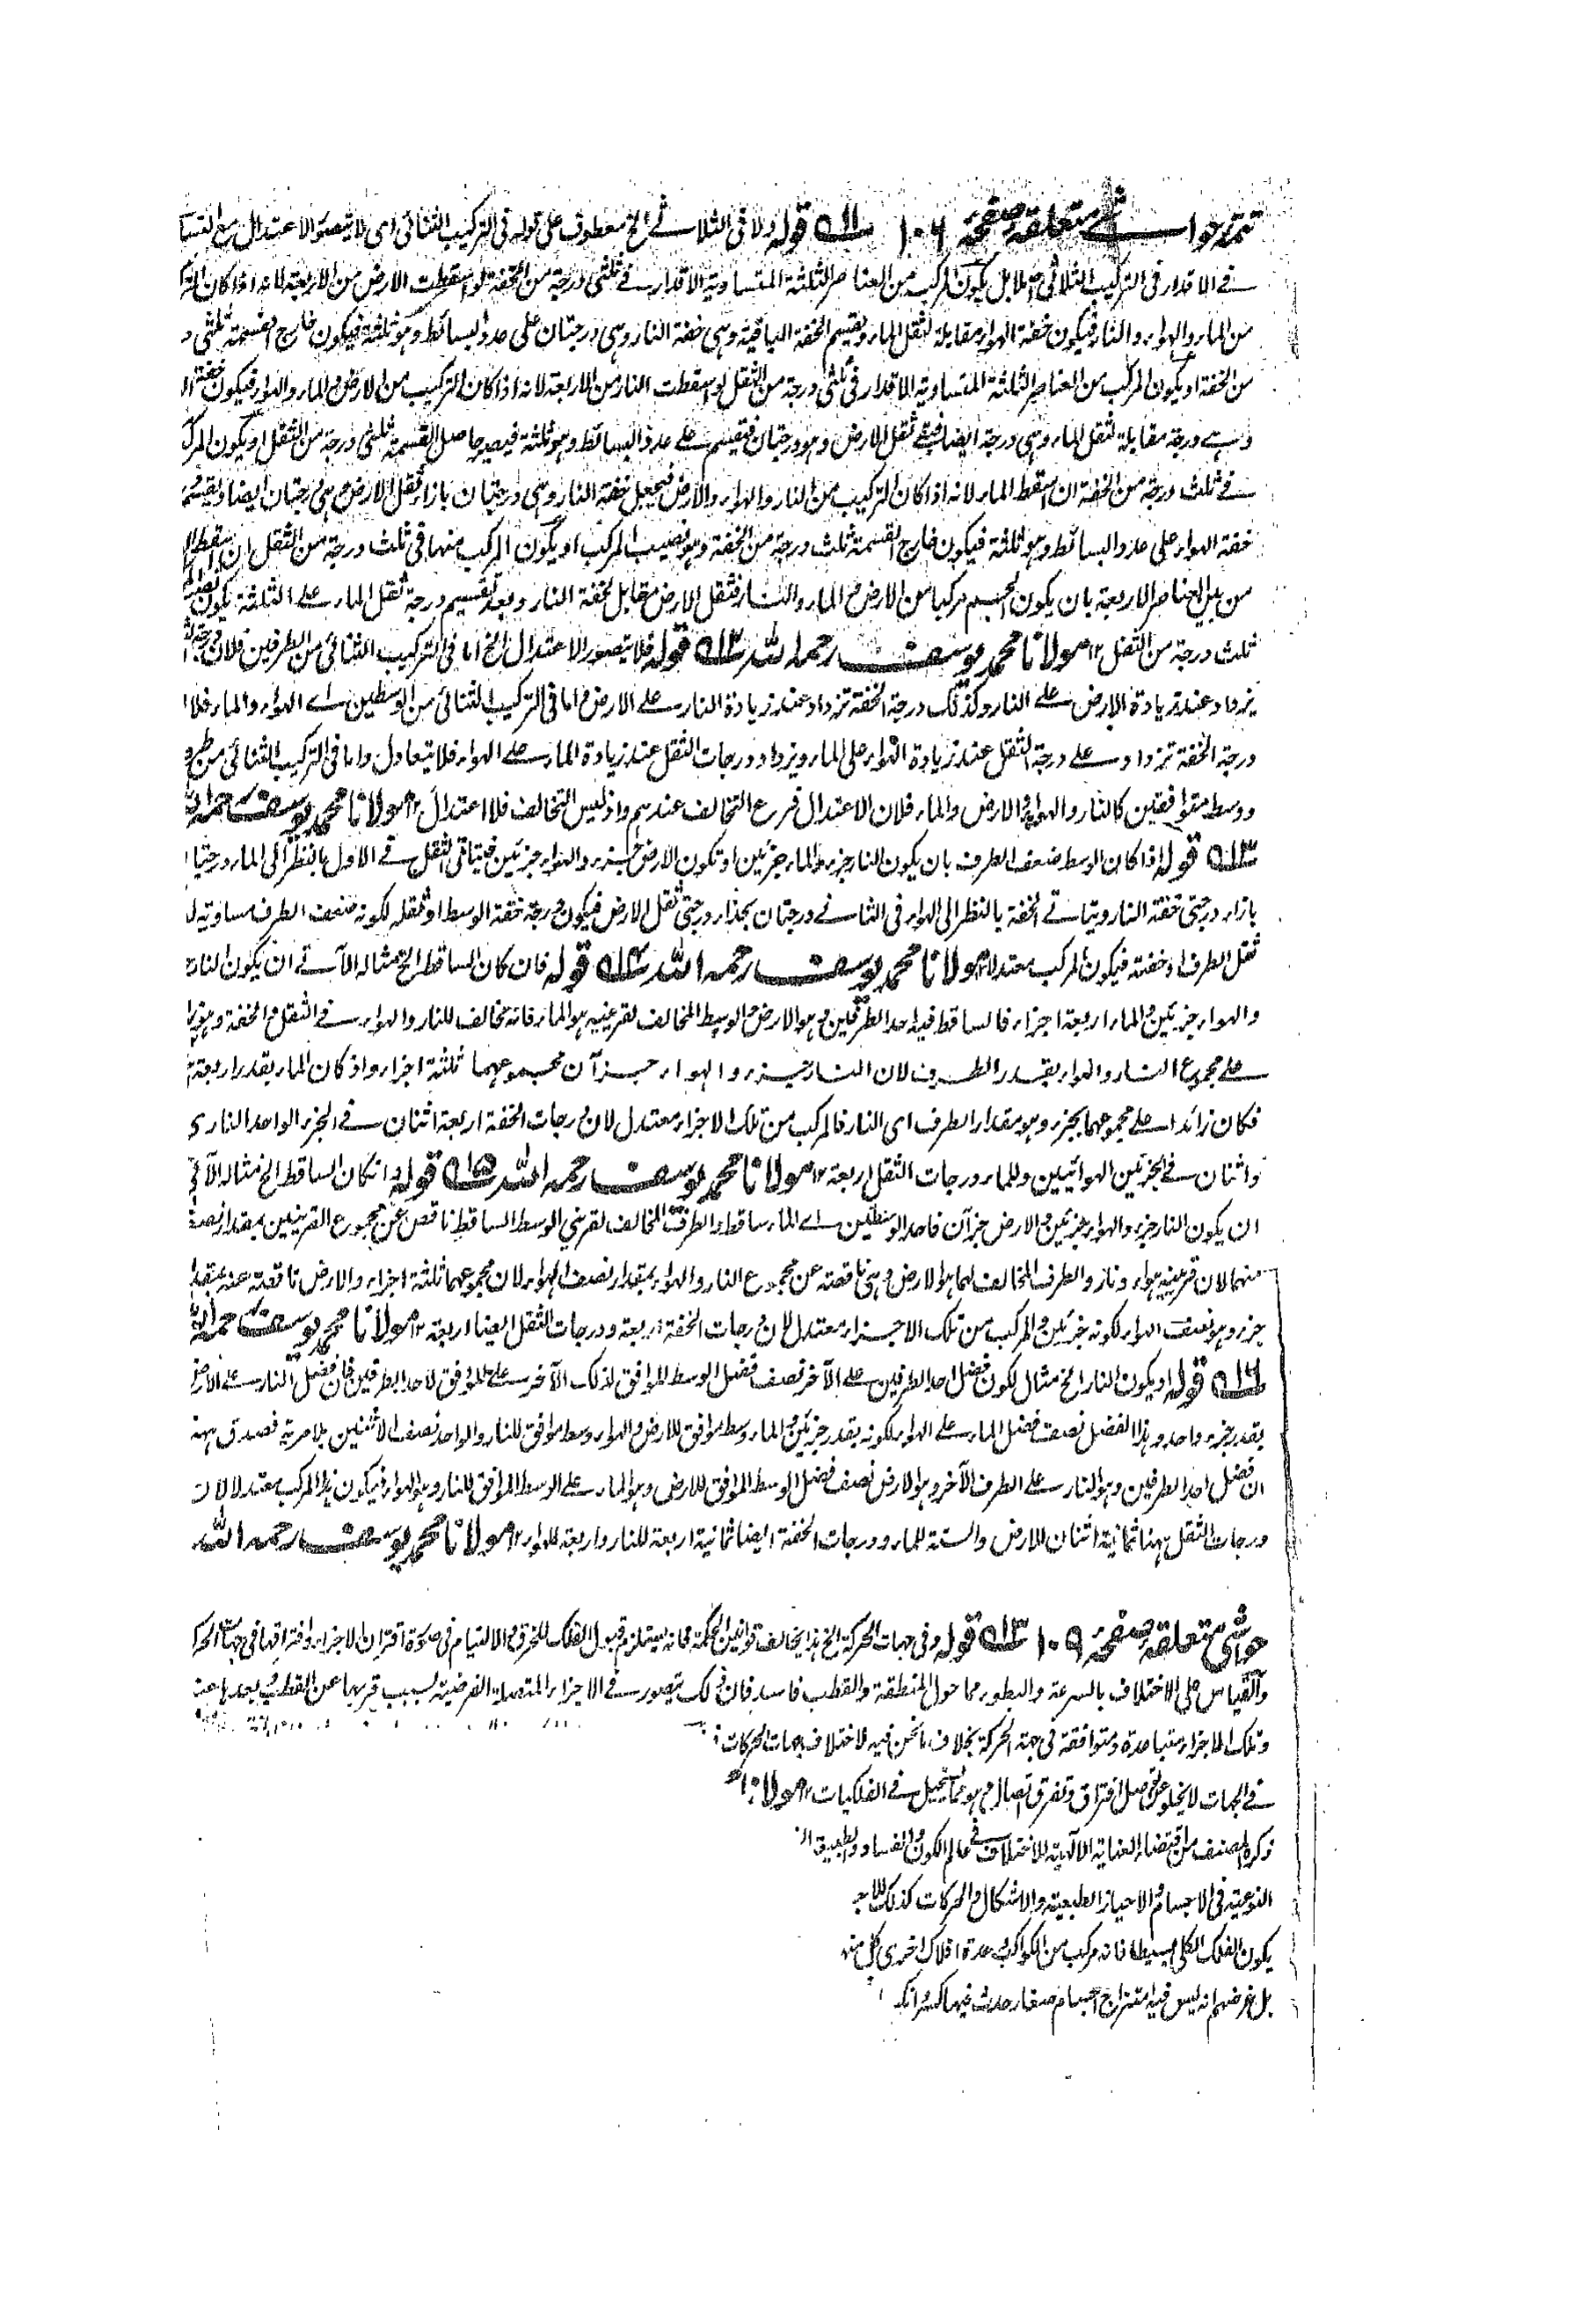 تتمة حواشي متعلقة صفحة ١٠٦ قوله ولا في الثلاثي الخ معطوف على قوله في التركيب الثنائي اي لا يتصور الاعتدال مع التسا
في الاقدار في التركيب الثلاثي اصلا بل يكون المركب من العناصر الثلثة المتساوية الاقدار في ثلثي درجة من الخفة لو اسقطت الارض من الاربعة لانه اذا كان التر
من الماء والهواء والنار فيكون خفة الهواء مقابلة لثقل الماء وتقسيم الخفة الباقية وهي خفة النار وهي درجتان على عدد البسائط وهو ثلثة فيكون خارج القسمة ثلثي د
من الخفة او يكون المركب من العناصر الثلثة المتساوية الاقدار في ثلثي درجة من الثقل لو اسقطت النار من الاربعة لانه اذا كان التركيب من الارض والماء والهواء فيكون خفة ال
وهي درجة مقابلة لثقل الماء وهي درجة ايضا فبقي ثقل الارض وهو درجتان فتقسيم على عدد البسائط وهو ثلثة فيصير حاصل القسمة ثلثي درجة من الثقل او يكون المرك
في ثلث درجة من الخفة ان اسقط الماء لانه اذا كان التركيب من النار والهواء والارض فيجعل خفة النار وهي درجتان بازاء ثقل الارض وهي درجتان ايضا ويقسم
خفة الهواء على عدد البسائط وهو ثلثة فيكون خارج القسمة ثلث درجة من الخفة وهو نصيب المركب او يكون المركب منها في ثلث درجة من الثقل ان اسقط اله
من بين العناصر الاربعة بان يكون الجسم مركبا من الارض والماء والنار فثقل الارض مقابل لخفة النار وبعد تقسيم درجة ثقل الماء على الثلثة يكون نصيب الم
ثلث درجة من الثقل ١٢ مولانا محمد يوسف رحمه الله قوله فلا يتصور الاعتدال الخ اما في التركيب الثنائي من الطرفين فلان درجة الث
يزداد عند زيادة الارض على النار وكذلك درجة الخفة تزداد عند زيادة النار على الارض واما في التركيب الثنائي من الوسطين اے الهواء والماء فلا
درجة الخفة تزداد على درجة الثقل عند زيادة الهواء على الماء ويزداد درجات الثقل عند زيادة الماء على الهواء فلا يتعادل واما في التركيب الثنائي من طرف
ووسط متوافقين كالنار والهواء والارض والماء فلان الاعتدال فرع التخالف عندهم واذ ليس التخالف فلا اعتدال ١٢ مولانا محمد يوسف رحمه الله
قوله اذا كان الوسط ضعف الطرف بان يكون النار جزء والماء جزئين او تكون الارض جزء والهواء جزئين فيتاتي الثقل في الاول بالنظر الى الماء درجتا
بازاء درجتي خفة النار ويتاتي الخفة بالنظر الى الهواء في الثاني درجتان بحذاء درجتي ثقل الارض فيكون درجة خفة الوسط او ثقله لكونه ضعف الطرف مساوية ل
ثقل الطرف او خفته فيكون المركب معتدلا ١٢ مولانا محمد يوسف رحمه الله قوله فان كان الساقط الخ مثاله الآتي ان يكون النار
والهواء جزئين والماء اربعة اجزاء فالساقط فيه احد الطرفين وهو الارض والوسط المخالف لقرينيه هو الماء فانه مخالف للنار والهواء في الثقل والخفة وهو زا
على مجموع النار والهواء بقدر الطرف لان النار جزء والهواء جزآن مجموعهما ثلثة اجزاء واذ كان الماء بقدر اربعة
فكان زائدا على مجموعهما بجزء وهو مقدار الطرف اي النار فالمركب من تلك الاجزاء معتدل لان درجات الخفة اربعة اثنان في الجزء الواحد الناري
واثنان في الجزئين الهوائيين وللماء درجات الثقل اربعة ١٢ مولانا محمد يوسف رحمه الله قوله وان كان الساقط الخ مثاله الآتي
ان يكون النار جزء والهواء جزئين والارض جزآن فاحد الوسطين اے الماء ساقط والطرف المخالف لقريني الوسط الساقط ناقص عن مجموع القرينين بمقدار نصف
منهما لان قرينيه هواء ونار والطرف المخالف لهما هو الارض وهي ناقصة عن مجموع النار والهواء بمقدار نصف الهواء لان مجموعهما ثلثة اجزاء والارض ناقصة عنه بمقدا
جزء وهو نصف الهواء لكونه جزئين والمركب من تلك الاجزاء معتدل لان درجات الخفة اربعة ودرجات الثقل ايضا اربعة ١٢ مولانا محمد يوسف رحمه الله
قوله او يكون النار الخ مثال لكون فضل احد الطرفين على الآخر نصف فضل الوسط الموافق لذلك الآخر على الموافق لاحد الطرفين فان فضل النار على الارض
بقدر جزء واحد وهذا الفضل نصف فضل الماء على الهواء لكونه بقدر جزئين والماء وسط موافق للارض والهواء وسط موافق للنار والواحد نصف الاثنين بلا مرية فصدق ههنا
ان فضل احد الطرفين وهو النار على الطرف الآخر وهو الارض نصف فضل الوسط الموافق للارض وهو الماء على الوسط الموافق للنار وهو الهواء فيكون هذا المركب معتدلا لان
درجات الثقل ههنا ثمانية اثنان للارض والستة للماء ودرجات الخفة ايضا ثمانية اربعة للنار واربعة للهواء ١٢ مولانا محمد يوسف رحمه الله
حواشي متعلقة صفحة ١٠٩ قوله وفي جهات الحركة الخ هذا يخالف قوانين الحكمة فانه يستلزم قبول الفلك للخرق والالتيام في صورة اقتران الاجزاء وافتراقها في جهات الحر
والقياس على الاختلاف بالسرعة والبطوء مما حول المنطقة والقطب فاسد فان ذلك يتصور في الاجزاء المتصلة الفرضية بسبب قربها عن القطب وبعدها عنه
وتلك الاجزاء متباعدة ومتوافقة في جهة الحركة بخلاف ما نحن فيه لاختلاف جهات الحركات
في الجهات لا يخلو عن تحصل افتراق وتفرق اتصال وهو مما يستحيل في الفلكيات ١٢ مولانا
ذكره المصنف من اقتضاء العناية الالهية للاختلاف في عالم الكون والفساد
النوعية في الاجسام والاحياز الطبعية والاشكال والحركات كذلك
يكون الفلك الكلي بسيطا فانه مركب من الكواكب وعدة افلاك اخرى كل منه
بل غرضهم انه ليس فيه امتزاج اجسام صغار حدث فيها كسر